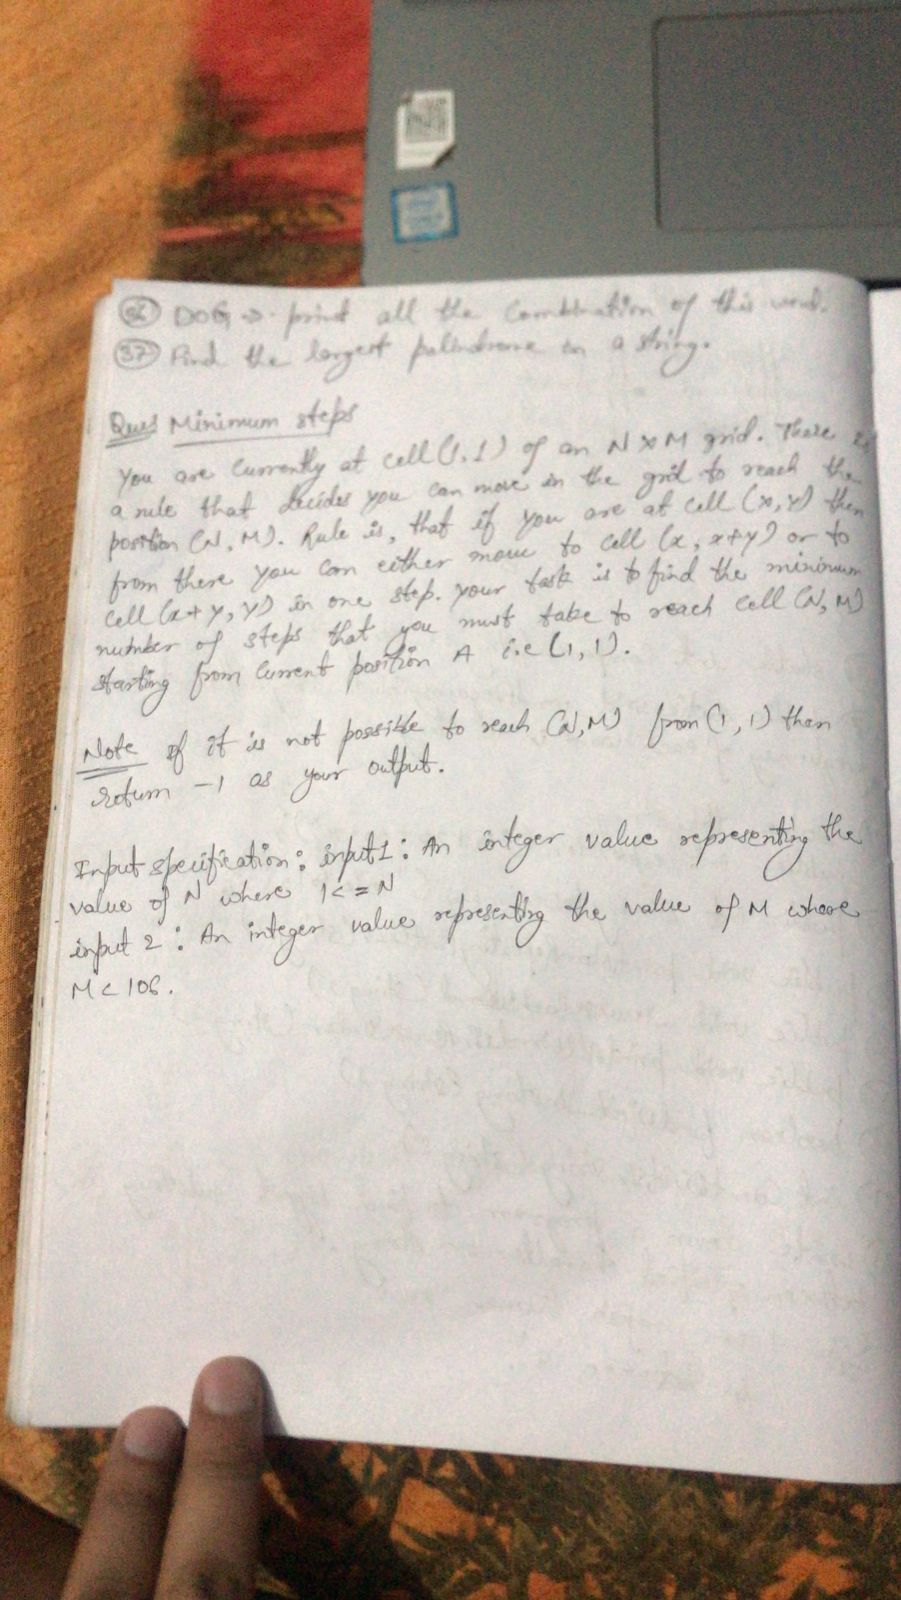 36 DOG → print all the Combination of this word.
37 Find the largest palindrome in a string.
Ques Minimum steps
You are Currently at cell (1,1) of an N x M grid. There is
a rule that decides you can move in the grid to reach the
position (N, M). Rule is, that if you are at Cell (x, y) then
from there you can either move to cell (x, x+y) or to
cell (x+y, y) in one step. your task is to find the minimum
number of steps that you must take to reach cell (N, M)
starting from current position A i.e (1, 1).
Note if it is not possible to reach (N, M) from (1, 1) then
return -1 as your output.
Input specification: input1: An integer value representing the
value of N where 1<=N
input 2: An integer value representing the value of M where
M< 106.